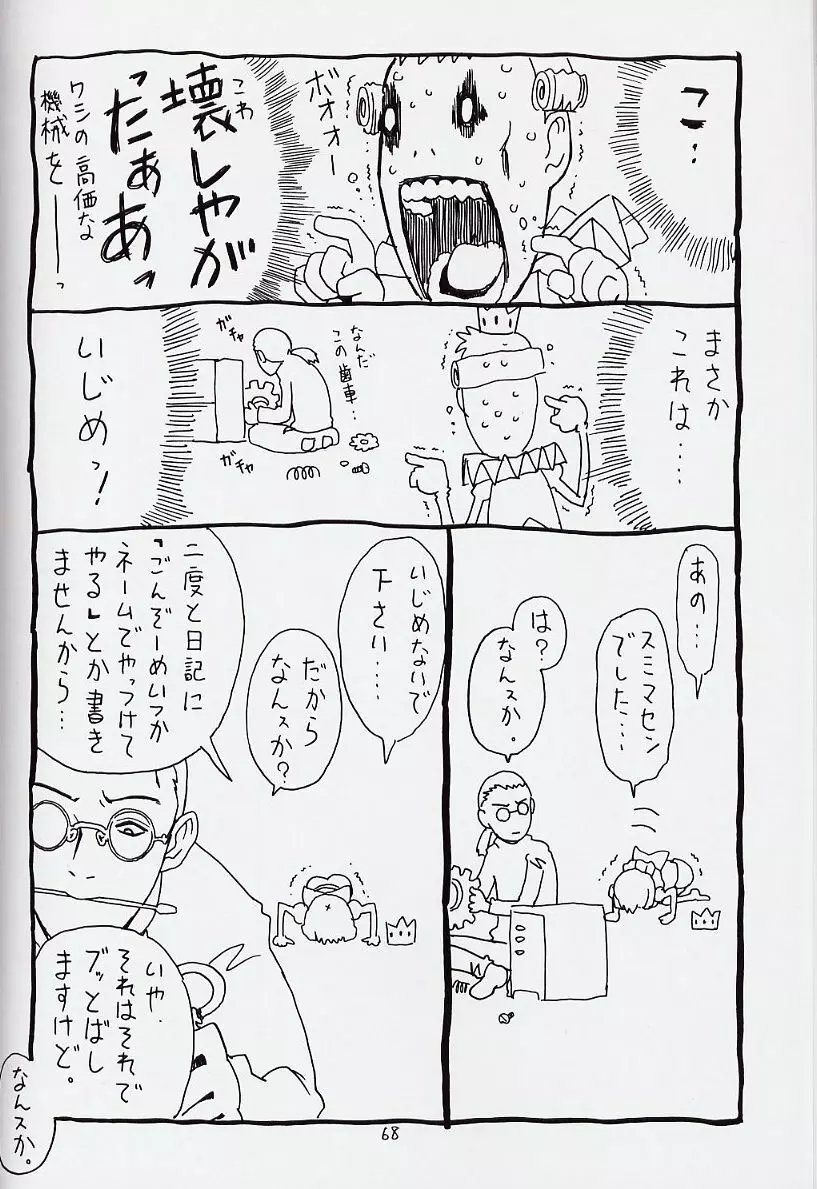 こ…
ボオオー
こわ
壊しやが
ったぁ
あっ
ワシの高価な
機械を——っ
まさか
これは……
なんだ
この歯車…
ガチャ
ガチャ
いじめっ!
あの…
スミマセン
でした…
は?
なんスか。
いじめないで
下さい……
だから
なんスか?
二度と日記に
「ごんぞーめいつか
ネームでやっつけて
やる」とか書き
ませんから…
いや、
それはそれで
ブッとばし
ますけど。
なんスか。
68